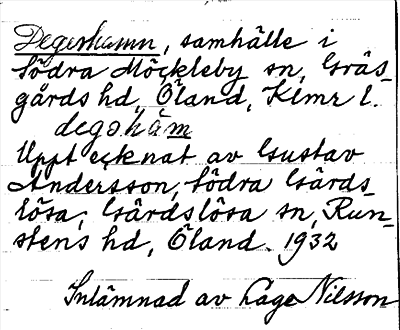 Degerhamn, samhälle i
Södra Möckleby sn, Gräs-
gårds hd, Öland, Klmr l.
degəham
Uppt ecknat av Gustav
Andersson, Södra Gärds-
lösa, Gärdslösa sn, Run-
stens hd, Öland. 1932
Inlämnad av Lage Nilsson